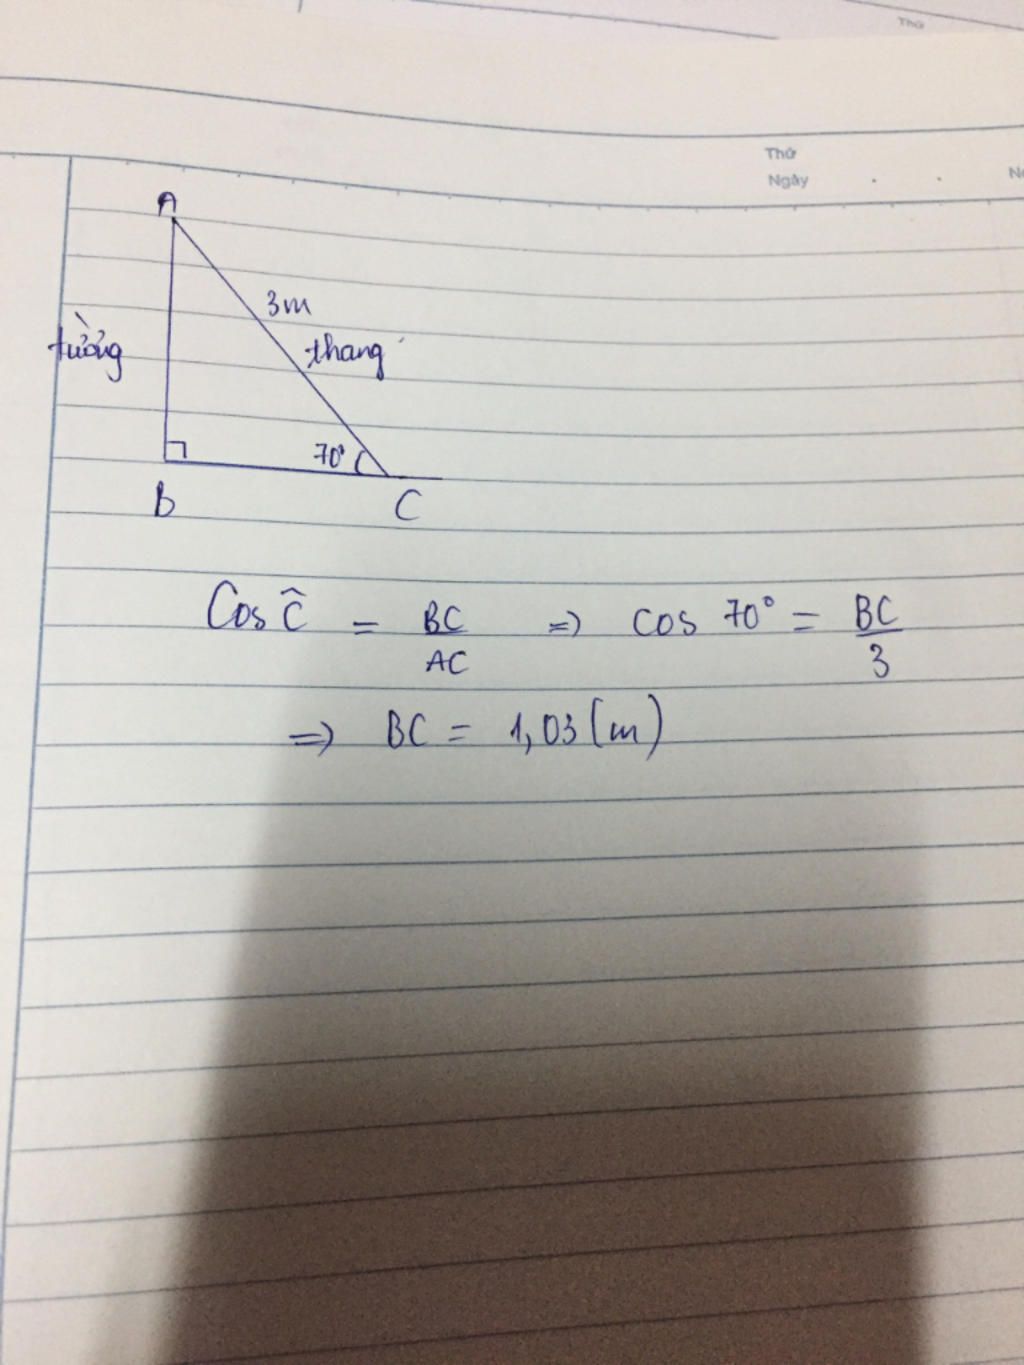 Thứ
Thứ
Ngày
A
3m
tường
thang
70°
B
C
Cos Ĉ = BC/AC => cos 70° = BC/3
=> BC = 1,03 (m)